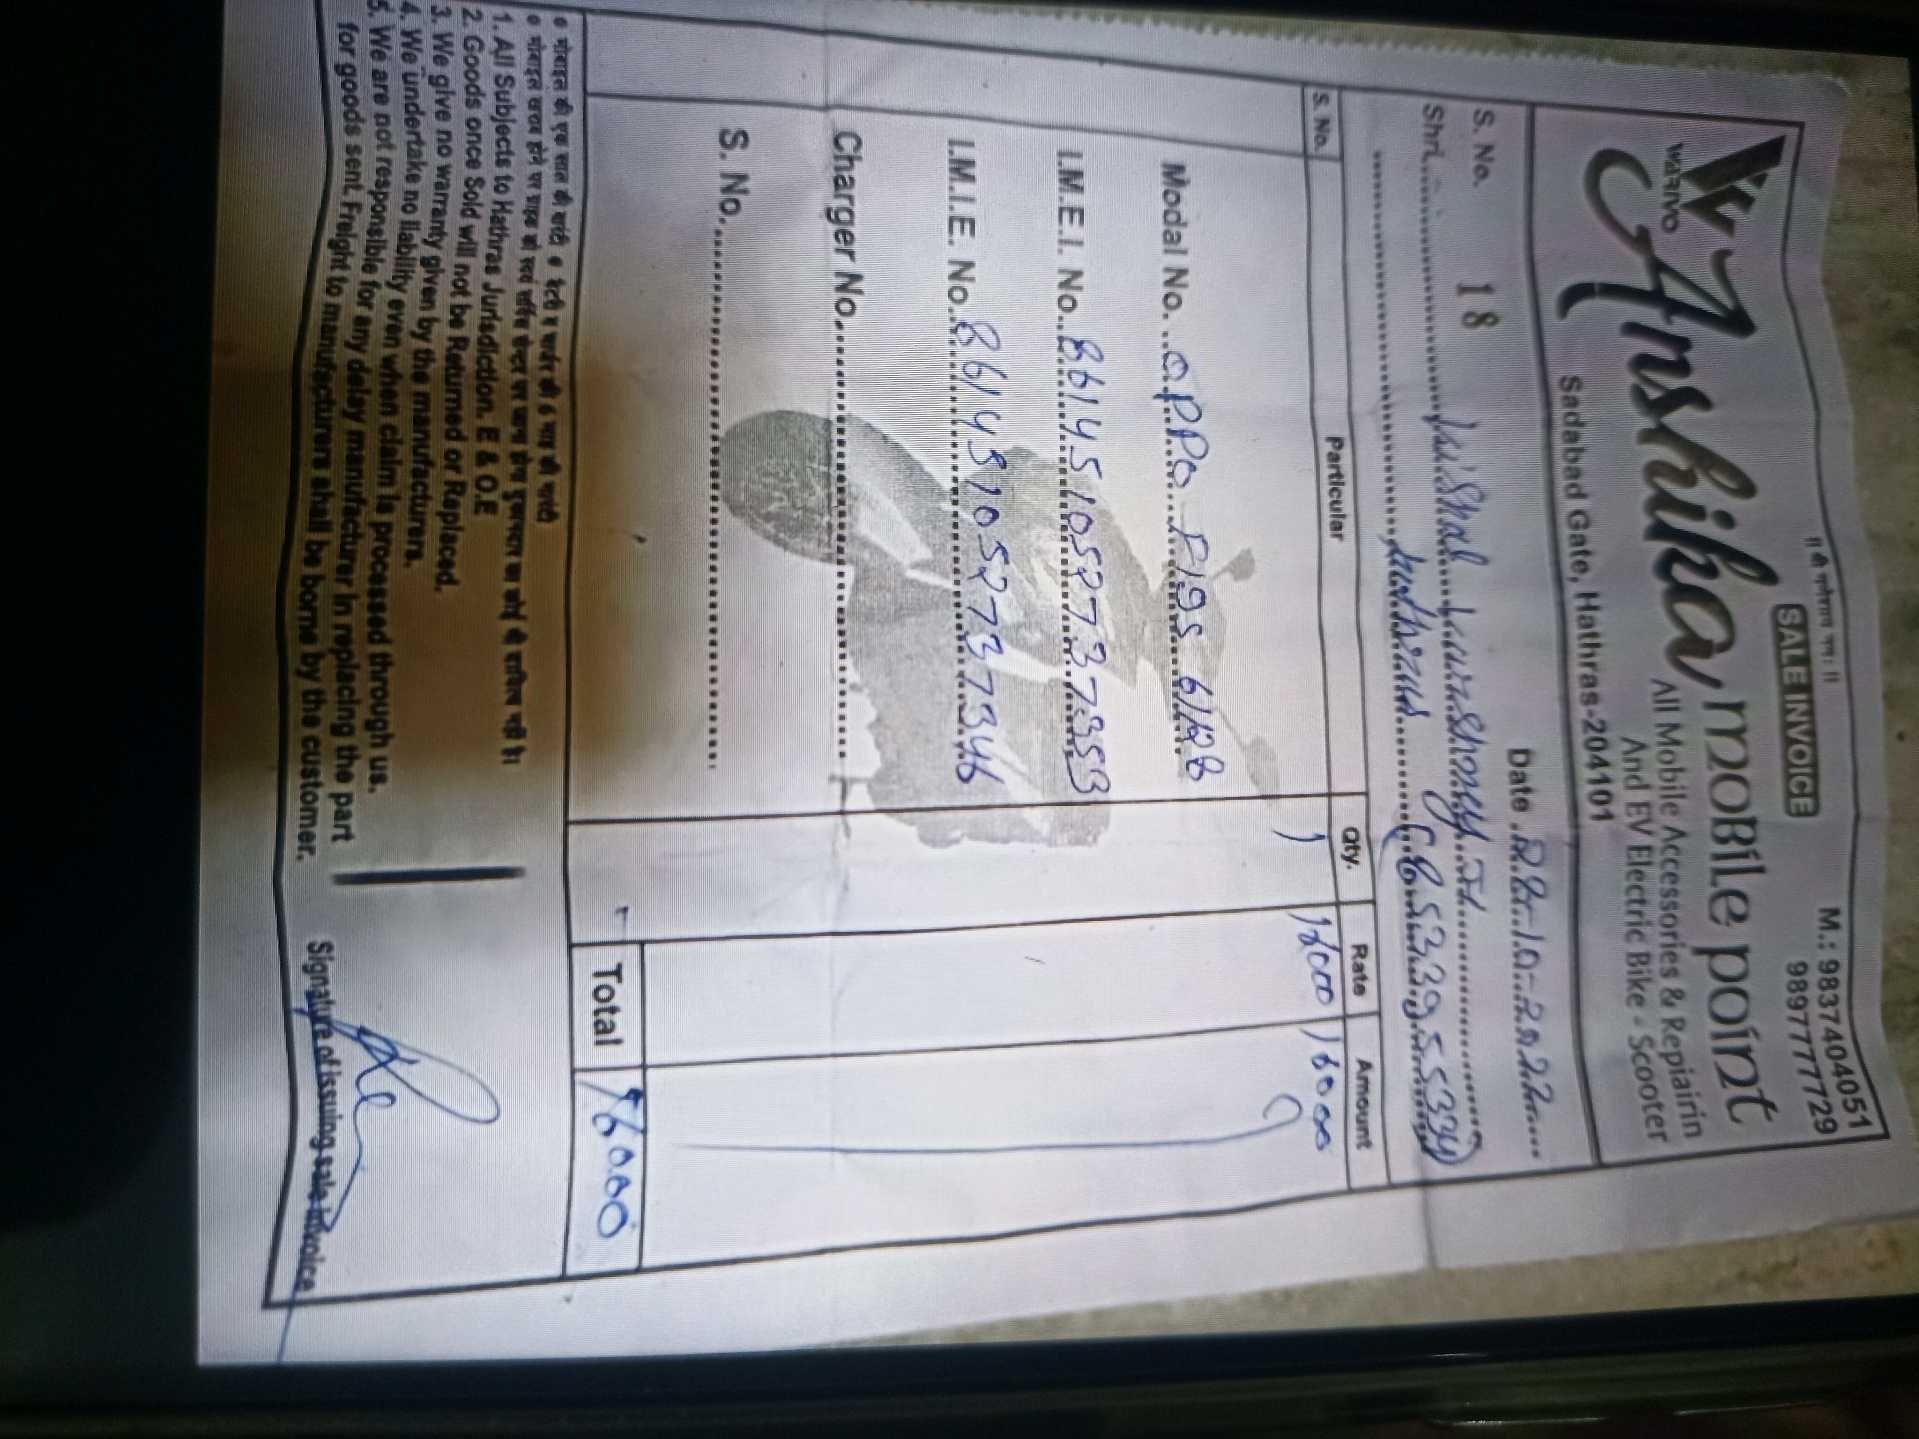 !! श्री गणेशाय नमः !!
SALE INVOICE
M.: 9837404051
9897777729
WARIVO
Anshika MOBILE POINT
All Mobile Accessories & Repiairin
And EV Electric Bike - Scooter
Sadabad Gate, Hathras-204101
S. No. 18
Date 28-10-2022
Shri
S. No. Particular Qty. Rate Amount
1 16000 16000
Modal No. OPPO F19S 6/128
I.M.E.I. No. 861451052737353
I.M.I.E. No. 861451052737346
Charger No.
S. No.
Total 16000
• मोबाइल की एक साल की वारंटी • बैटरी व चार्जर की 6 माह की वारंटी
• मोबाइल खराब होने पर ग्राहक को स्वयं सर्विस सेन्टर पर जाना होगा दुकानदार का कोई भी दायित्व नहीं है।
1. All Subjects to Hathras Jurisdiction. E & O.E
2. Goods once Sold will not be Returned or Replaced.
3. We give no warranty given by the manufacturers.
4. We undertake no liability even when claim is processed through us.
5. We are not responsible for any delay manufacturer in replacing the part
for goods sent. Freight to manufacturers shall be borne by the customer.
Signature of issuing sale invoice